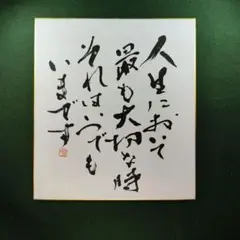 人生において
最も大切な時
それはいつでも
いまです